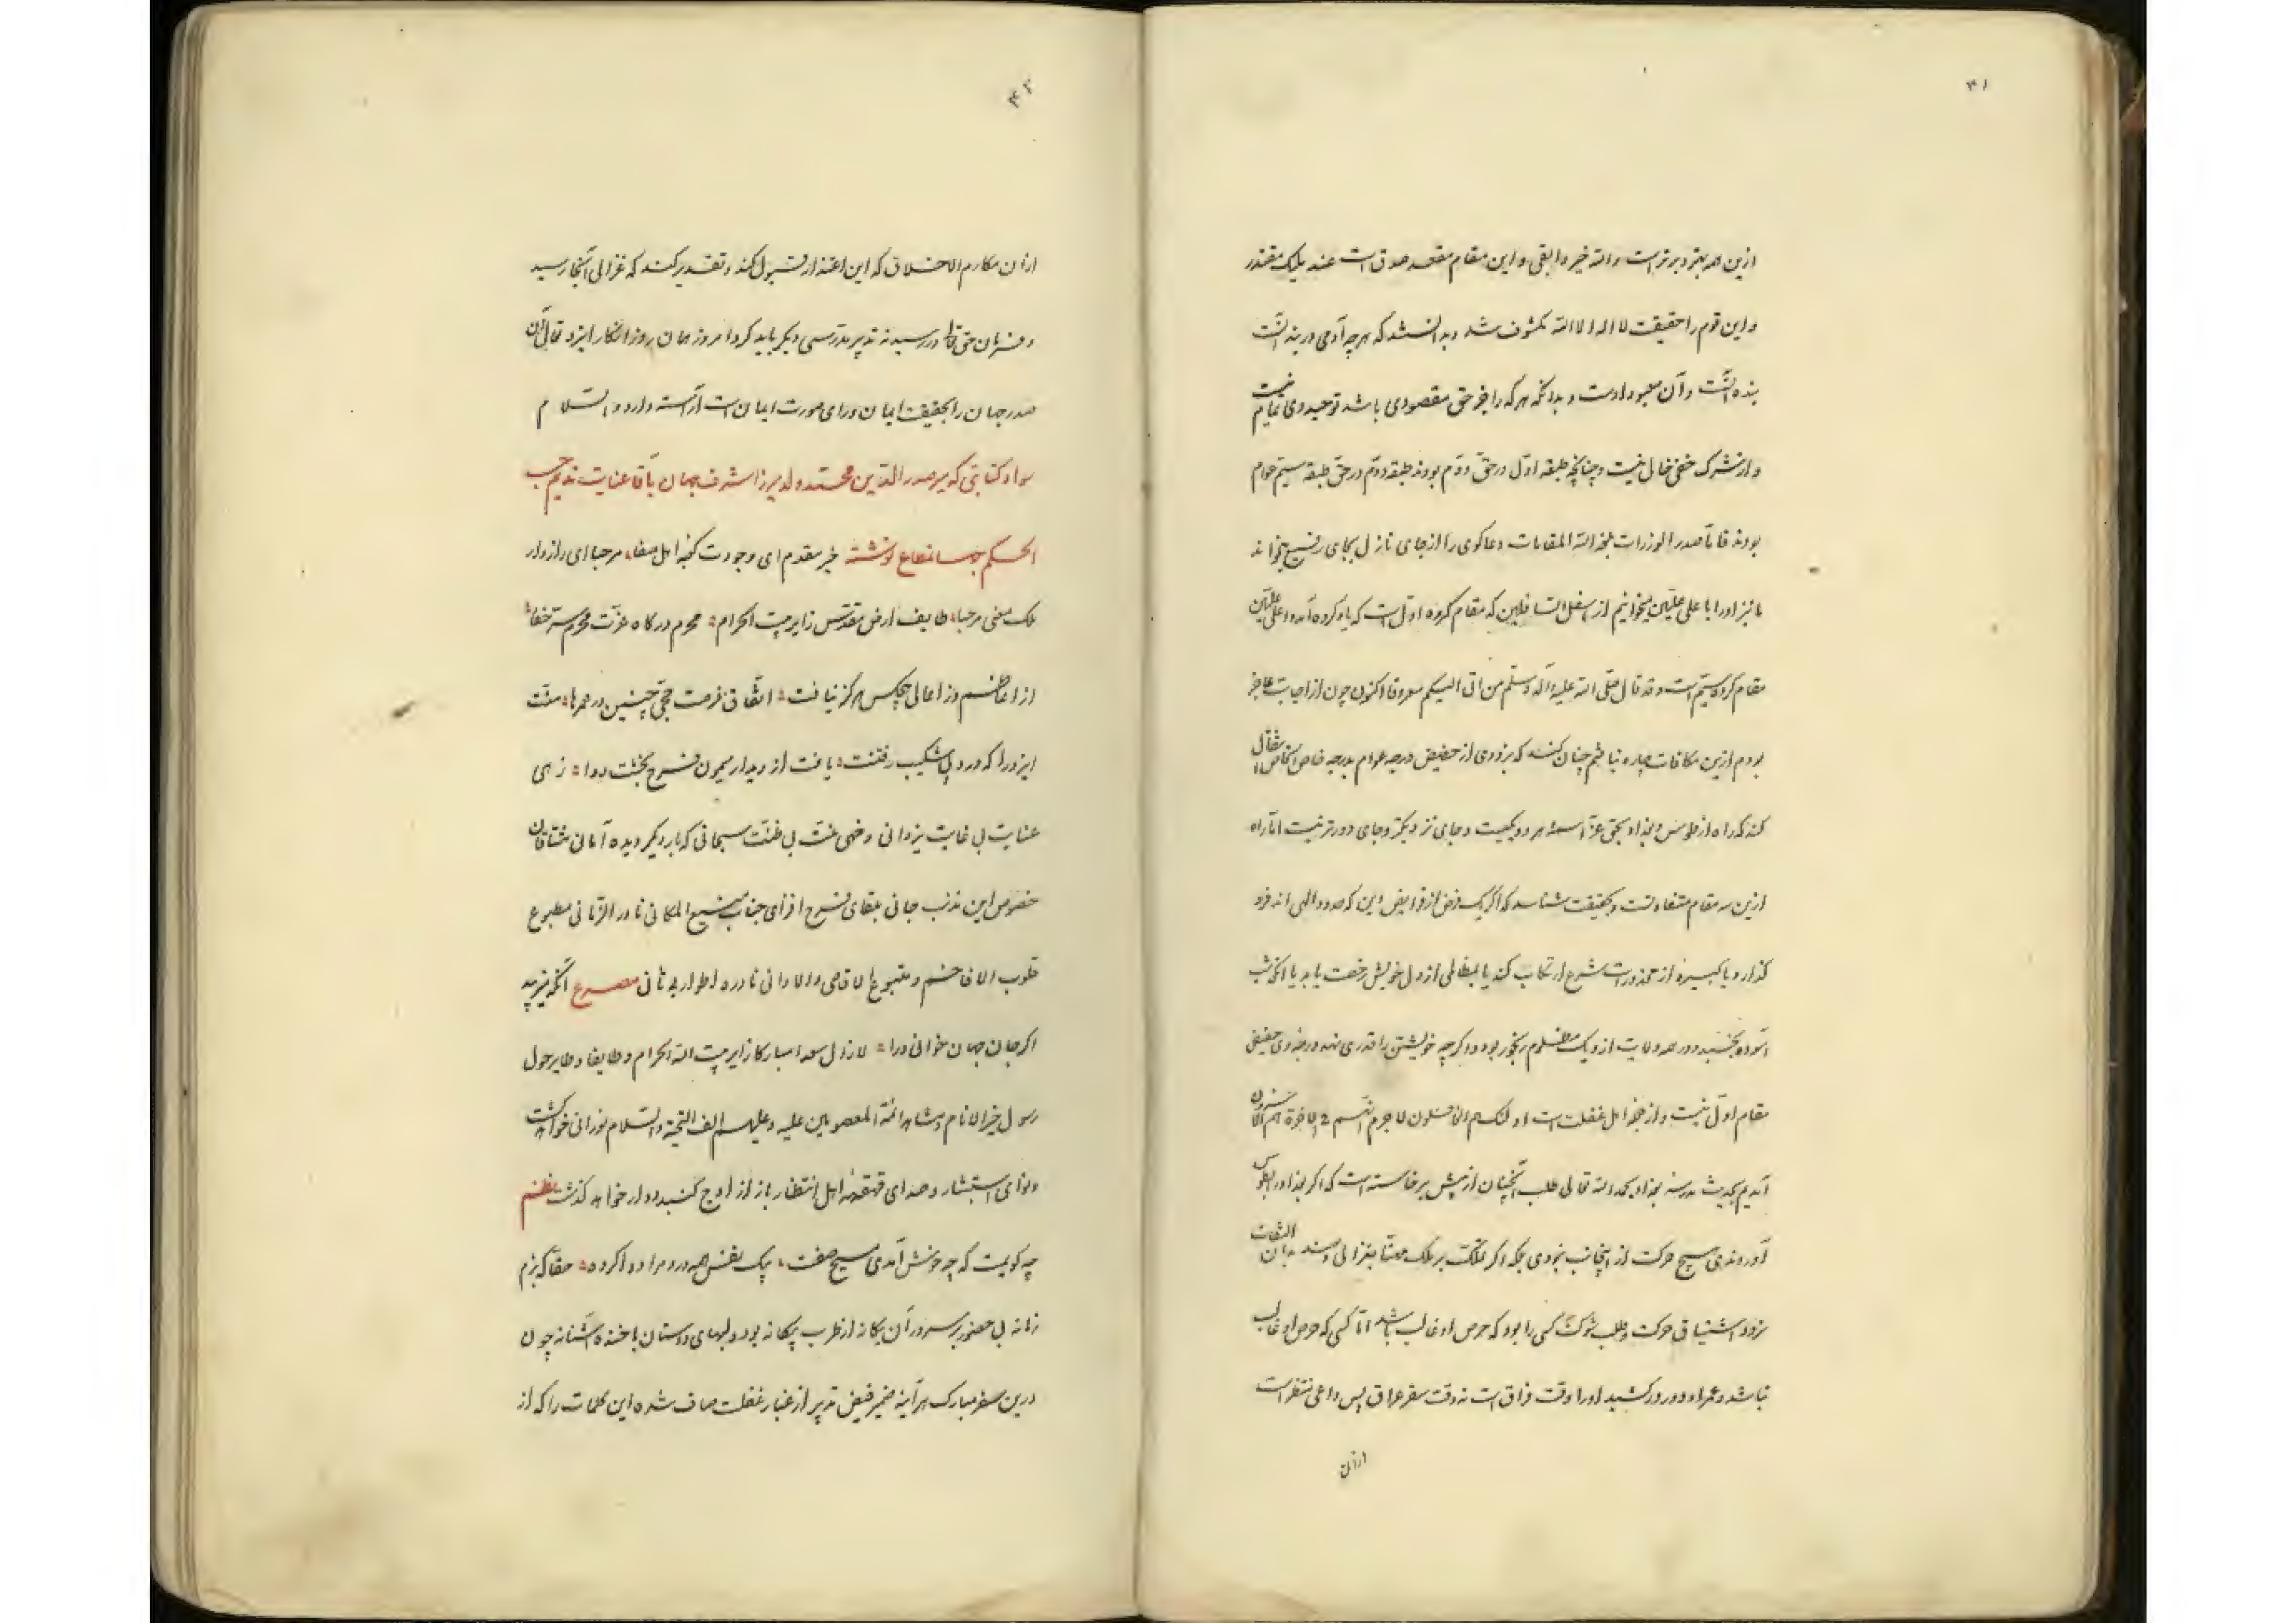 ۴۱
ازین همه بهتر و برترست والله خیر و ابقی و این مقام مقعد صدق است عند ملیک مقتدر
و این قوم را حقیقت لا اله الا الله مکشوف شد و بدانستند که هرچه آدمی در بند آنست
بنده آنست و آن معبود اوست و بدانکه هر که را جز حق مقصودی باشد توحید وی تمام نیست
و از شرک خفی خالی نیست و چنانچه طبقه اول در حق دوم بودند طبقه دوم در حق طبقه سیم عوام
بودند فاما صدر الوزرات بلغه الله المقامات دعاکوی را از جای نازل بجای رفیع میخواند
ما نیز او را با علی علیین میخوانیم از اسفل السافلین که مقام کروه اول است که یاد کرده آمد و اعلی علیین
مقام کروه سیم است و قد قال صلی الله علیه و آله و سلم من اتی الیکم معروفا اکنون چون از اجابت عاجز
بودم ازین مکافات چاره نیافتم چنان کند که بزودی از حضیض درجه عوام بدرجه خاص الخاص انتقال
کند که راه از طوس و بغداد بحق عز اسمه هر دو یکیست و جای نزدیکتر و جای دورتر نیست اما راه
ازین سه مقام متفاوتست و بحقیقت شناسد که اکر یک فرض از فرایض دین که حدود الهی اند فرو
کذارد و یا کبیره از محذورات شرع ارتکاب کند یا بمظالمی از دل خویش رخصت یابد یا انکه شب
آسوده بخسبد و در همه ولایت از و یک مظلوم رنجور بود و اکرچه خویشتن را قدری نهد درجه وی حضیض
مقام اول نیست و از جمله اهل غفلت است اولئک هم الغافلون لا جرم انهم فی الآخرة هم الاخسرون
آمدیم بحدیث مدرسه بغداد بحمد الله تعالی طلب آنچنان از پیش برخاسته است که اکر بغداد را بطوس
آوردندی هیچ حرکت از اینجانب نبودی بلکه اکر مملکت بر ملک مهنا بغزالی دهند بدان التفات
نرود اشتیاق حرکت و طلب شوکت کسی را بود که حرص او غالب باشد اما کسی که حرص او غالب
نباشد و عمر او دور درکشید او را وقت فراق است نه وقت سفر عراق پس داعی منتظر است
از آن
۴۲
از آن مکارم الاخلاق که این اعتذار قبول کند و تقدیر کند که غزالی آنجا رسید
و فرمان حق تعالی در رسید نه تدبیر مدرسی دیکر باید کرد امروز همان روز انکار ایزد تعالی آن
صدر جهان را بحقیقت ایمان ورای صورت ایمان است آراسته دارد و السلام
سواد کتابتی که میر صدر الدین محمد ولد میرزا اشرف جهان بآقا عنایت ندیم حسب
الحکم جهانمطاع نوشته خیر مقدم ای وجودت کعبه اهل صفا مرحبا ای رازدار
ملک معنی مرحبا طایف ارض مقدس زایر بیت الحرام محرم درکاه عزت محرم ستر خفا
از اعاظم وز اعالی هیچکس هرکز نیافت اتفاق فرصت حجی چنین در عمرها منت
ایزد را که درد پی شکیب رفتنت یافت از دیدار میمون فرح بخشت دوا زهی
عنایت بی غایت یزدانی و خهی منت بی ظنت سبحانی که بار دیکر دیده آمانی مشتاقان
خصوص این مذنب جانی بلقای فرح افزای جناب منیع المکانی نادر الزمانی مطبوع
قلوب الافاخم و متبوع الاقاصی و الادانی نادره اطوار بی ثانی مصرع آنکه نیرزید
اکر جان جهان خوانی ورا لا زال سعدا مبارکا زایر بیت الله الحرام و طایفا و طایر حول
رسول خیر الانام و مشاهد ائمة المعصومین علیه و علیهم الف التحیة و السلام نورانی خواهد کشت
و نوای استبشار و صدای قهقهه اهل انتظار باز از اوج کنبد دوار خواهد کذشت نظم
چه کویمت که چه خوش آمدی مسیح صفت بیک نفس همه درد مرا دوا کردی حقا که بزم
زمانه بی حضور پر سرور آن یکانه از طرب بیکانه بود و لبهای دوستان با خنده آشنا نه چون
درین سفر مبارک هر آینه ضمیر فیض تدبیر از غبار غفلت صاف شده این کلمات را که از